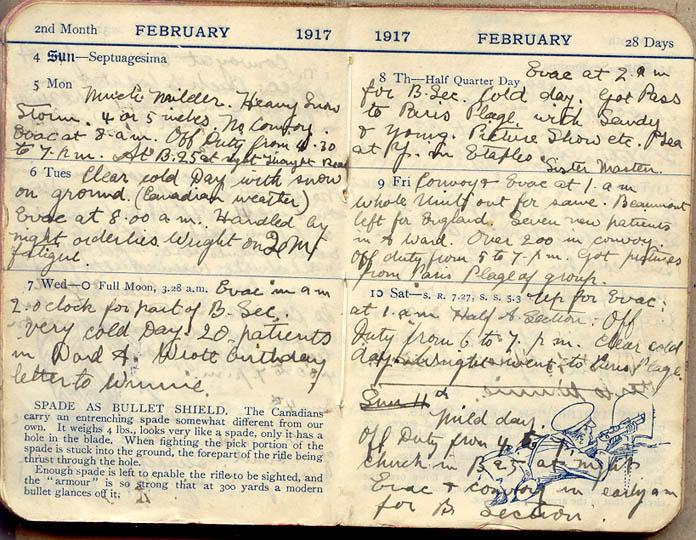 2nd Month FEBRUARY 1917
4 Sun—Septuagesima
5 Mon
Much milder. Heavy Snow
Storm. 4 or 5 inches No Convoy.
Evac at 8 am. Off Duty from 4.30
to 7 p.m. At B.25 at night
6 Tues Clear cold Day with snow
on ground. (Canadian weather)
Evac at 8.00 a.m. Handled by
night orderlies Wright on
fatigue.
7 Wed—O Full Moon, 3.28 a.m. Evac in am
2.oclock for part of B. Sec.
Very cold Day. 20 patients
in Ward A. Wrote birthday
letter to Winnie.
SPADE AS BULLET SHIELD. The Canadians
carry an entrenching spade somewhat different from our
own. It weighs 4 lbs., looks very like a spade, only it has a
hole in the blade. When fighting the pick portion of the
spade is stuck into the ground, the forepart of the rifle being
thrust through the hole.
Enough spade is left to enable the rifle to be sighted, and
the "armour" is so strong that at 300 yards a modern
bullet glances off it.
1917 FEBRUARY 28 Days
8 Th—Half Quarter Day Evac at 2 a m
for B. Sec. Cold day. Got Pass
to Paris Plage with Sandy
& Young. Picture Show etc. Tea
at in Etaples
Sister Masten.
9 Fri Convoy & Evac at 1. a m
whole Unit out for same. Beaumont
left for England. Seven new patients
in A ward. Over 200 in convoy.
Off duty from 5 to 7 p.m. Got pictures
from Paris Plage of group.
10 Sat—S. R. 7.27, S. S. 5.3 Up for Evac:
at 1. am Half A Section. Off
Duty from 6 to 7. p.m. Clear cold
day at night went to Paris Plage.
Sun 11th
Mild day.
Off Duty from 4
church in B 25 at night
Evac & convoy in early am
for B Section.